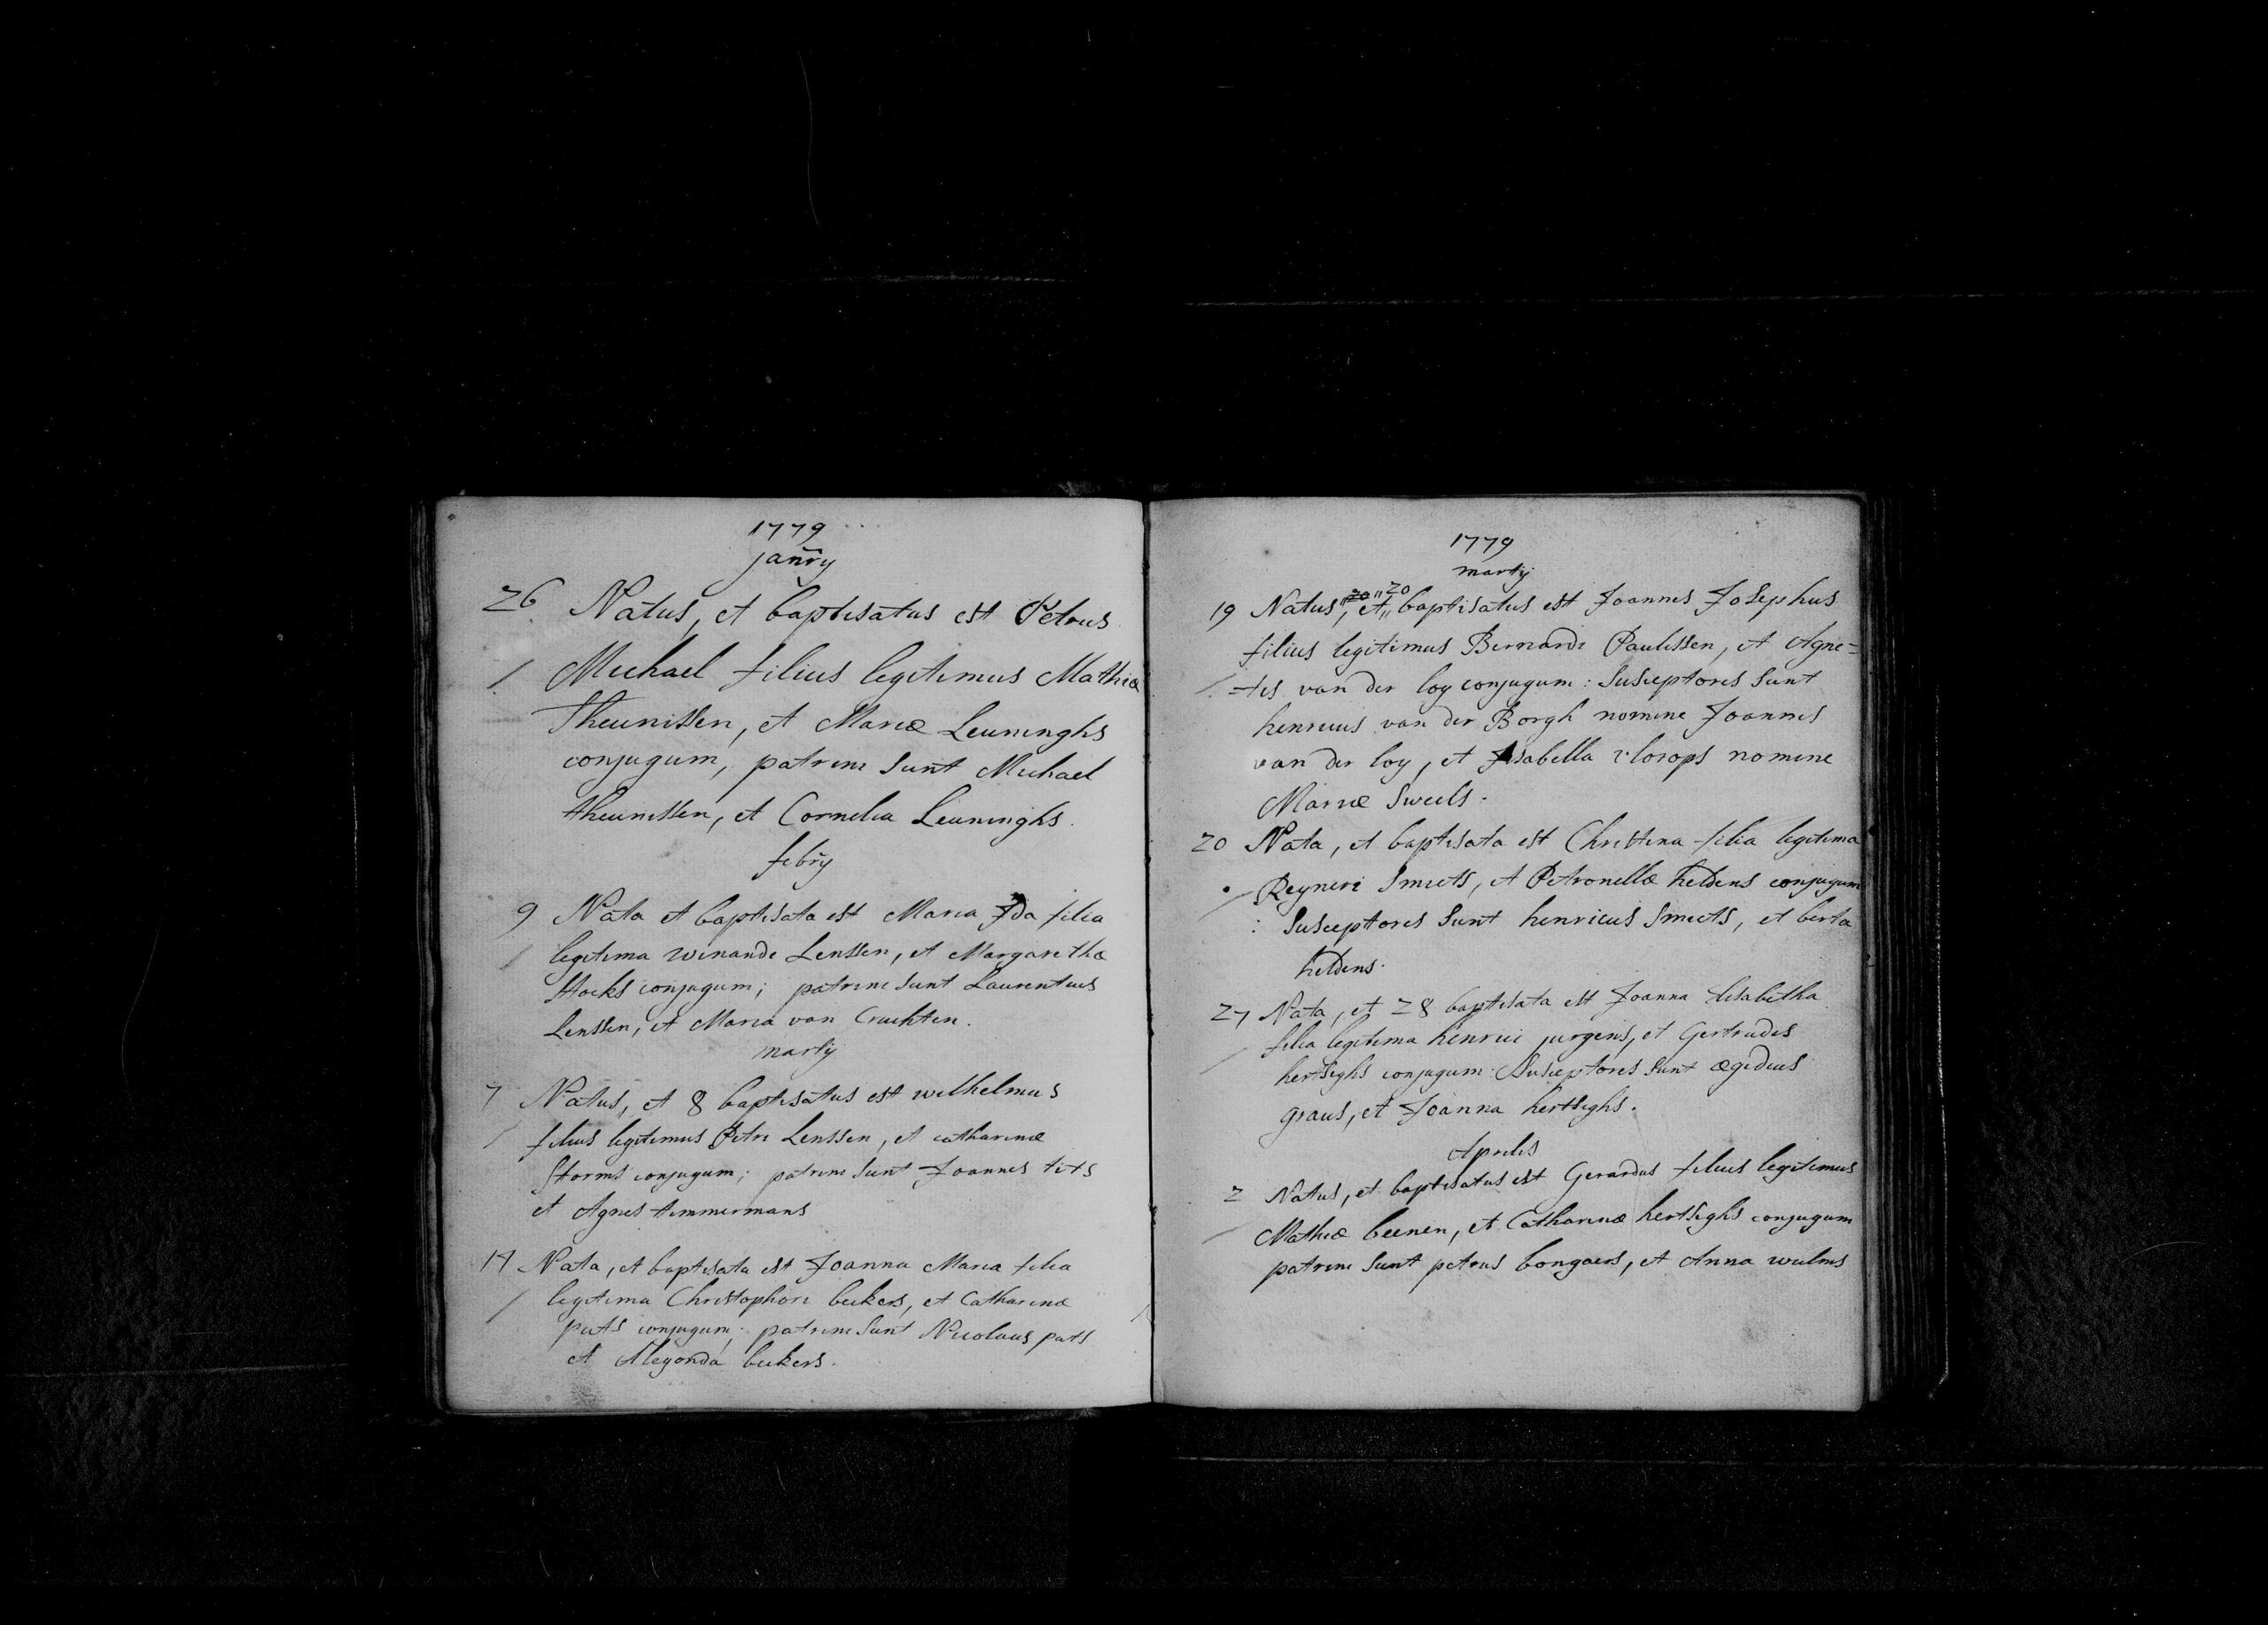 1779
jañry
26 Natus, et baptisatus est Petrus
Michael filius legitimus Mathiæ
Theunissen, et Mariæ Leuninghs
conjugum, patrini sunt Michael
theunissen, et Cornelia Leuninghs.
febry
9 Nata et baptisata est Maria Ida filia
legitima winandi Lenssen, et Margarethæ
Hocks conjugum; patrini sunt Laurentius
Lenssen, et Maria van Cruchten.
martij
7 Natus, et 8 baptisatus est wilhelmus
filius legitimus Petri Lenssen, et catharinæ
Storms conjugum; patrini sunt Joannes tits
et Agnes timmermans
14 Nata, et baptisata est Joanna Maria filia
legitima Christophori beckers, et Catharinæ
puts conjugum; patrini sunt Nicolaus puts
et Alegonda beckers.
1779
martij
19 Natus, et 20 baptisatus est Joannes Josephus
filius legitimus Bernardi Paulissen, et Agne=
=tis van der loy conjugum: Susceptores sunt
henricus van der Borgh nomine Joannis
van der loy, et Isabella vlorops nomine
Mariæ Sweels.
20 Nata, et baptisata est Christina filia legitima
Reyneri Smeets, et Petronellæ heldens conjugum
: Susceptores sunt henricus Smeets, et berta
heldens.
27 Nata, et 28 baptisata est Joanna Elisabetha
filia legitima henrici jurgens, et Gertrudis
hertsighs conjugum: Susceptores sunt ægidius
graus, et Joanna hertsighs.
Aprilis
2 Natus, et baptisatus est Gerardus filius legitimus
Mathiæ beenen, et Catharinæ hertsighs conjugum
patrini sunt petrus bongaers, et Anna wulms